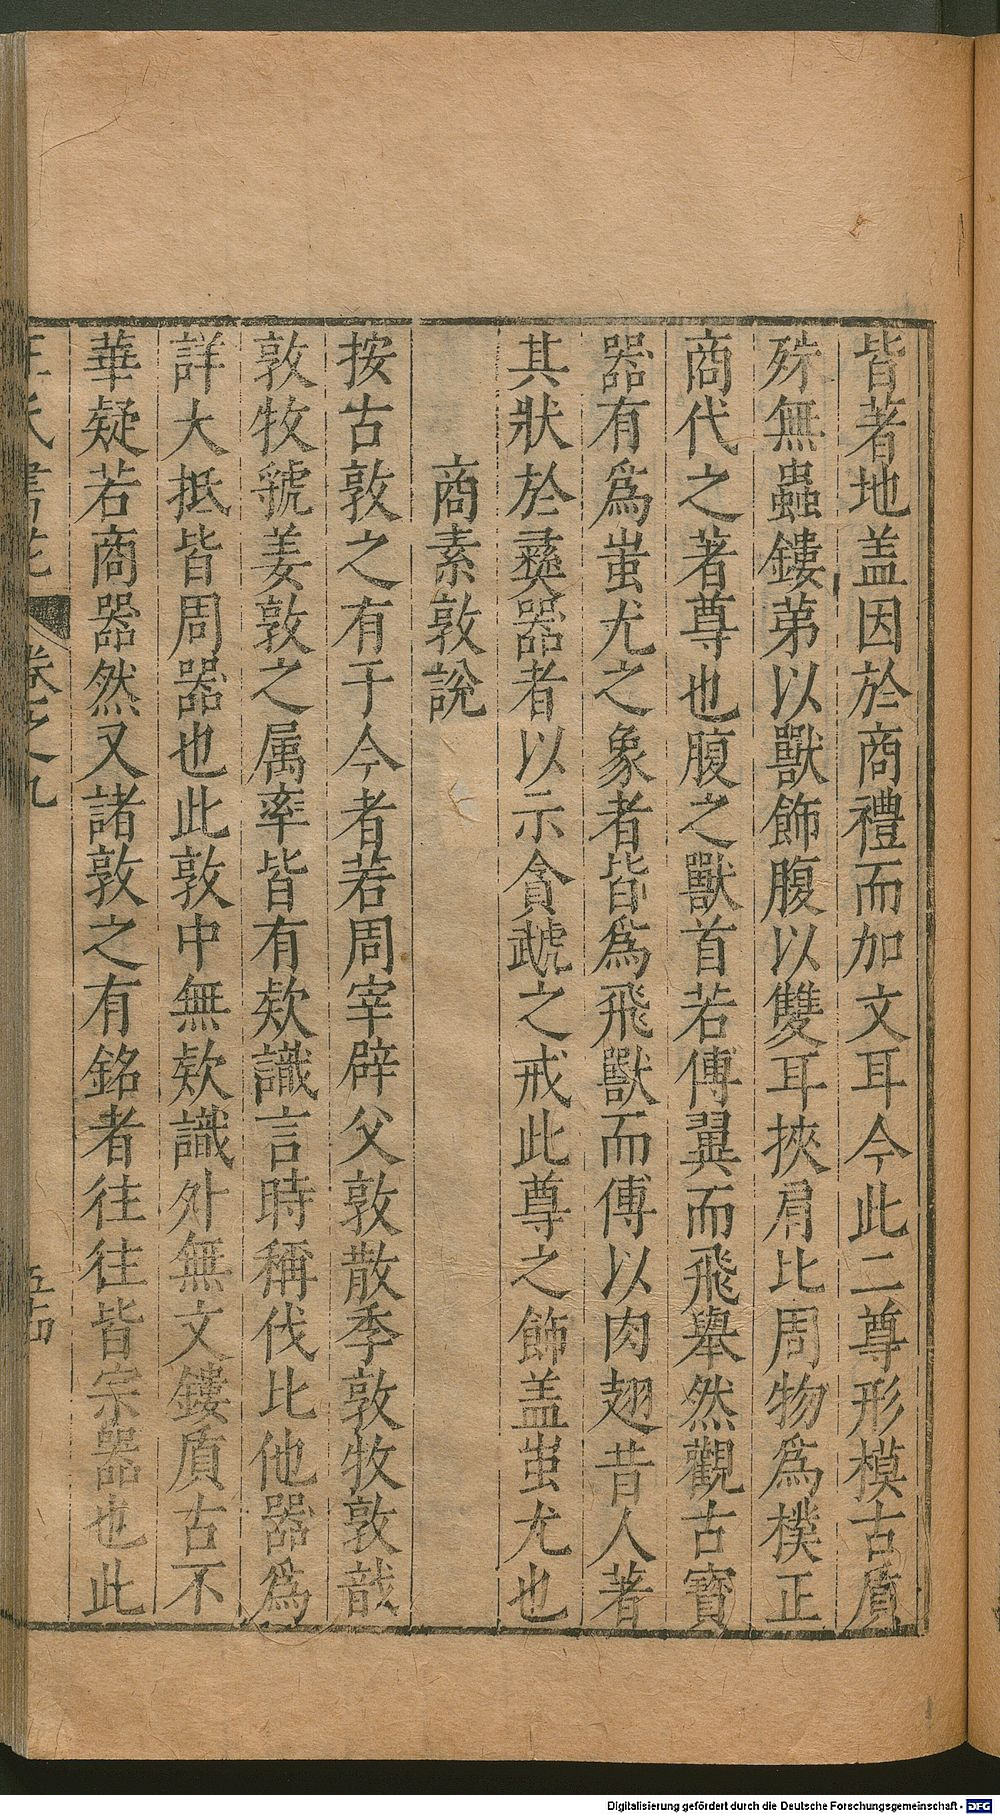 皆著地盖因於商禮而加文耳今此二尊形模古質
殊無蟲鏤苐以獸飾腹以雙耳挾肩比周物為樸正
商代之著尊也腹之獸首若傅翼而飛舉然觀古寶
器有為蚩尤之象者皆為飛獸而傅以肉翅昔人著
其狀於彞器者以示貪虣之戒此尊之飾盖蚩尤也
商素敦說
按古敦之有于今者若周宰辟父敦散季敦牧敦㦵
敦牧虢姜敦之属率皆有欵識言時稱伐比他器為
詳大抵皆周器也此敦中無欵識外無文鏤質古不
華疑若商器然又諸敦之有銘者往往皆宗器也此
卷之九
Digitalisierung gefördert durch die Deutsche Forschungsgemeinschaft - DFG